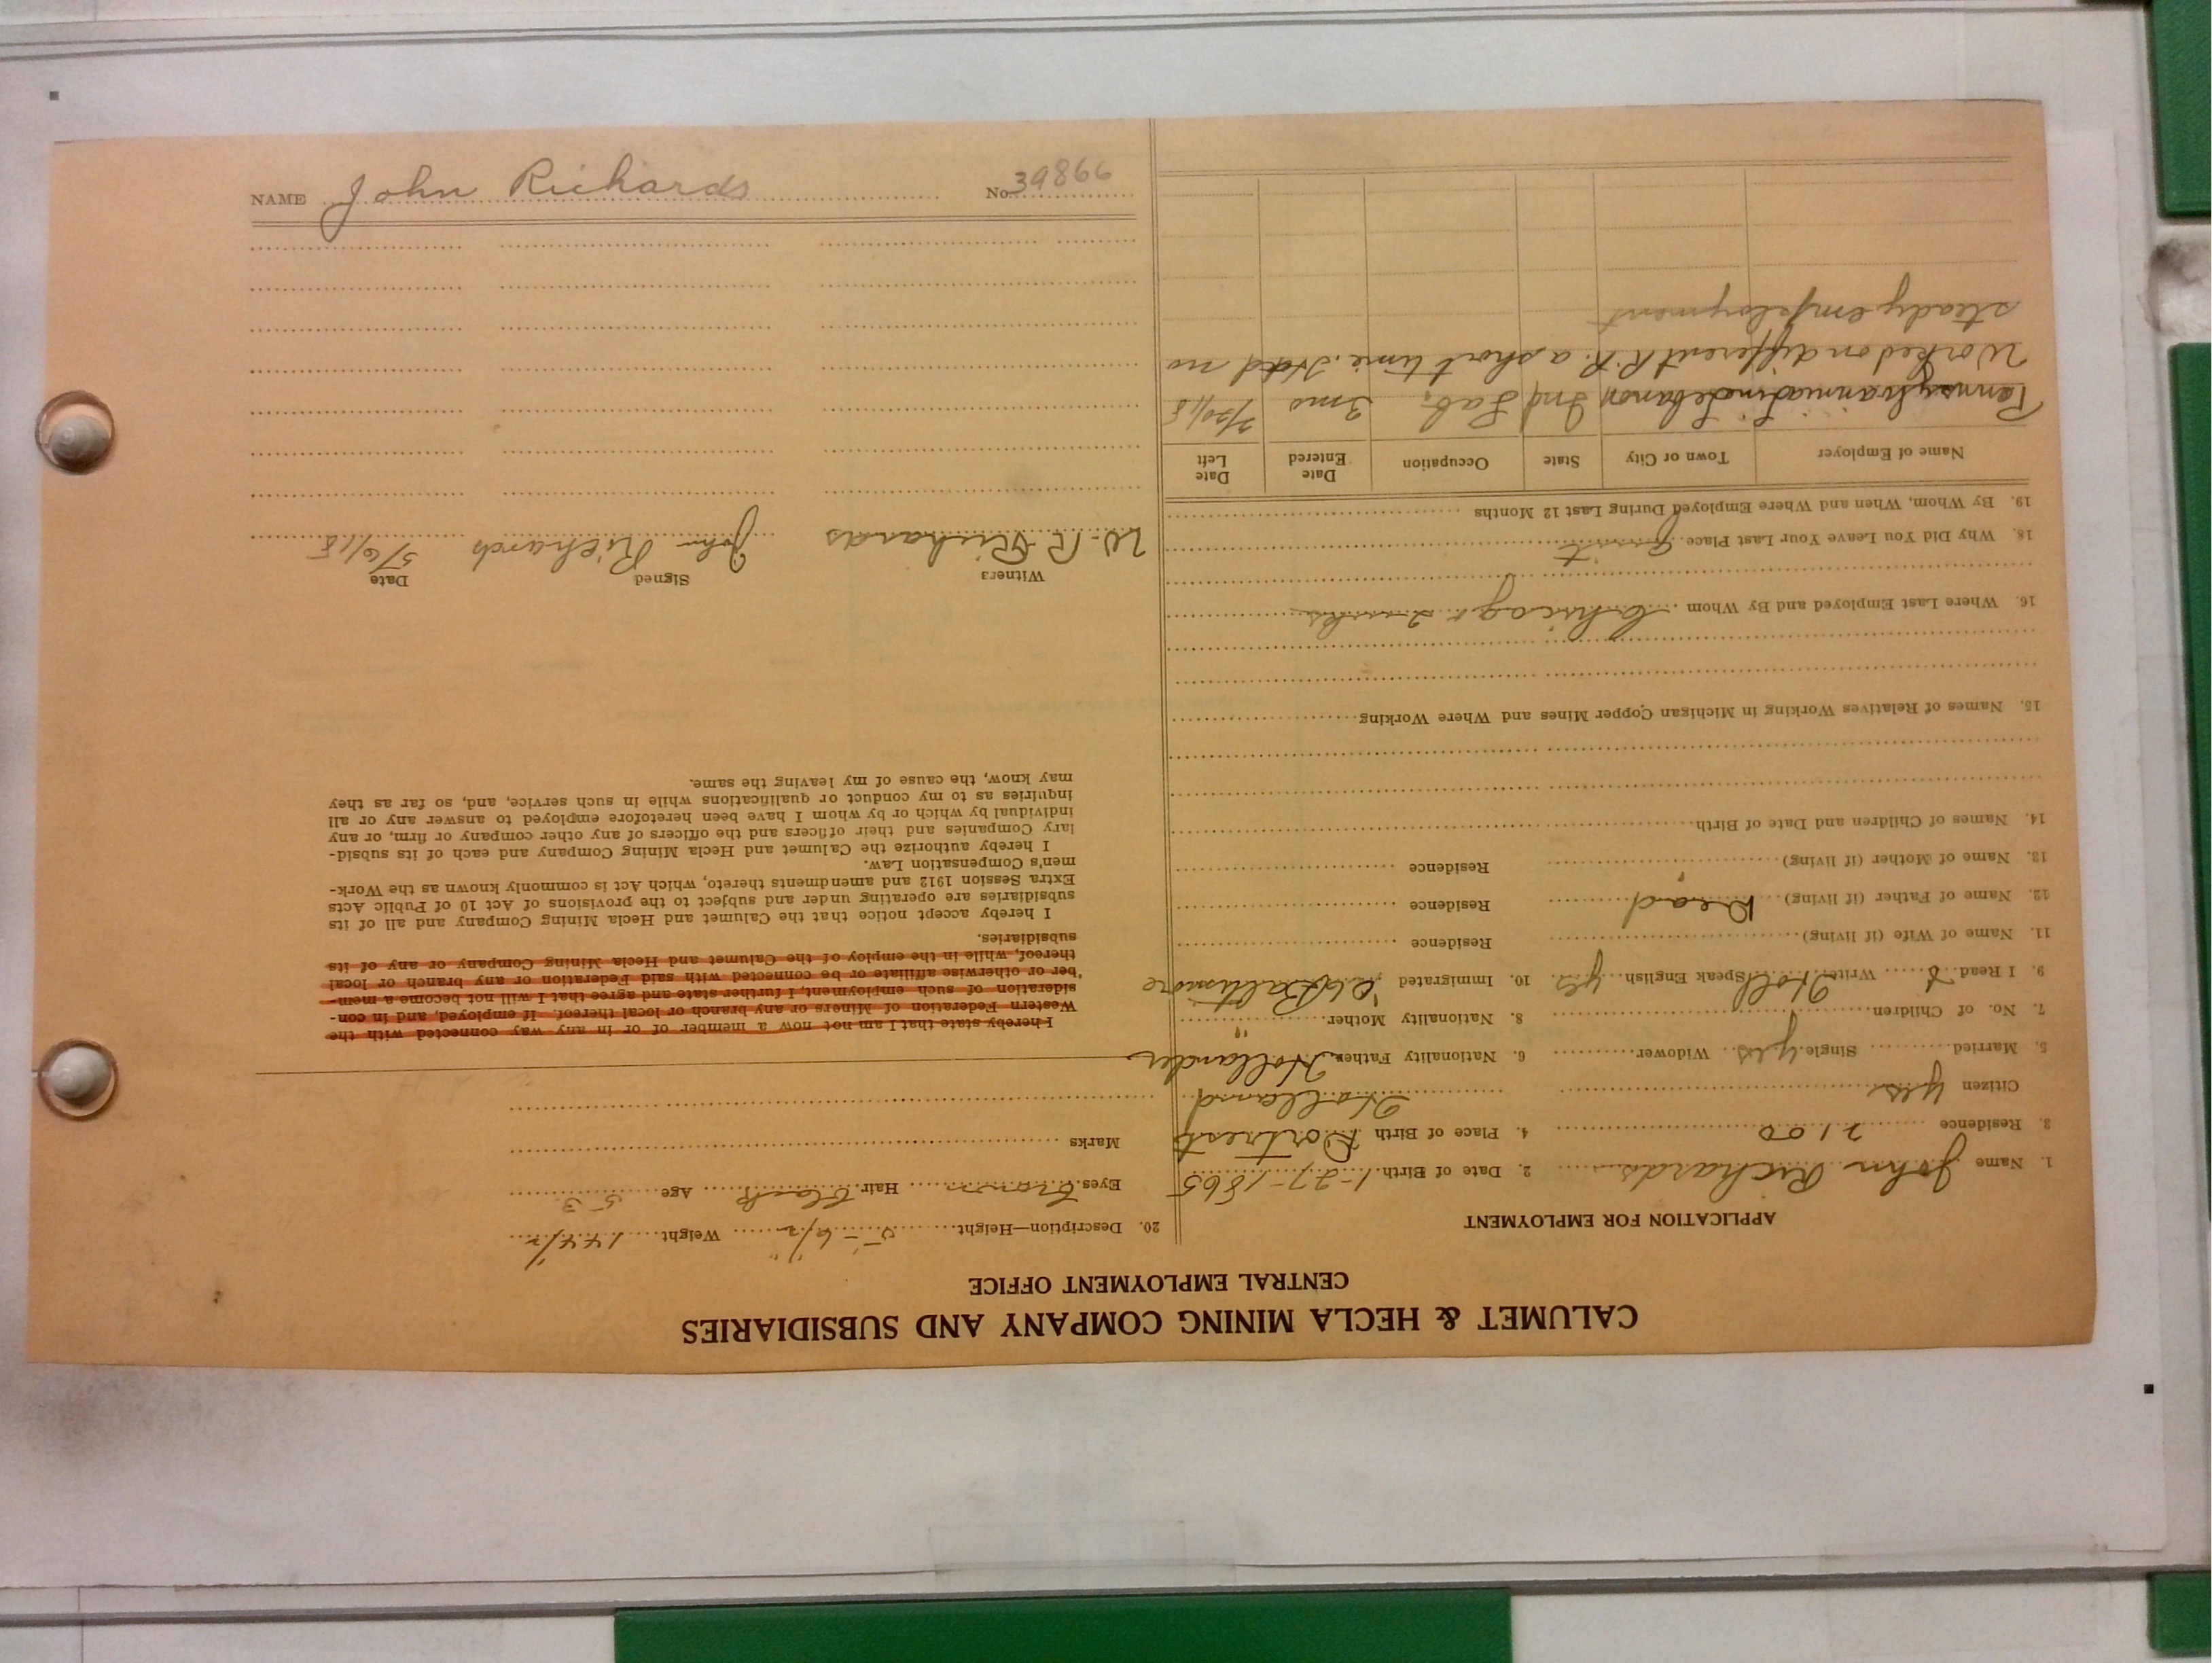 CALUMET & HECLA MINING COMPANY AND SUBSIDIARIES
CENTRAL EMPLOYMENT OFFICE
APPLICATION FOR EMPLOYMENT
1. Name John Richards 2. Date of Birth 1-27-1865
3. Residence 2100 4. Place of Birth
Citizen yes Holland
5. Married Single yes Widower 6. Nationality Father Hollander
7. No. of Children 8. Nationality Mother "
9. I Read Write Holl Speak English yes 10. Immigrated Baltimore
11. Name of Wife (if living) Residence
12. Name of Father (if living) Dead Residence
13. Name of Mother (if living) " Residence
14. Names of Children and Date of Birth
15. Names of Relatives Working in Michigan Copper Mines and Where Working
16. Where Last Employed and By Whom Chicago
18. Why Did You Leave Your Last Place Quit
19. By Whom, When and Where Employed During Last 12 Months
Name of Employer Town or City State Occupation Date Entered Date Left
Pennsylvania Line Lebanon Ind Lab. 3 mo
Worked on different R.R. a short time. Had no
steady employment
20. Description—Height 5'-6 1/2" Weight 144 1/2
Eyes Brown Hair Black Age 53
Marks
I hereby state that I am not now a member of or in any way connected with the
Western Federation of Miners or any branch or local thereof. If employed, and in con-
sideration of such employment, I further state and agree that I will not become a mem-
ber or otherwise affiliate or be connected with said Federation or any branch or local
thereof, while in the employ of the Calumet and Hecla Mining Company or any of its
subsidiaries.
I hereby accept notice that the Calumet and Hecla Mining Company and all of its
subsidiaries are operating under and subject to the provisions of Act 10 of Public Acts
Extra Session 1912 and amendments thereto, which Act is commonly known as the Work-
men's Compensation Law.
I hereby authorize the Calumet and Hecla Mining Company and each of its subsid-
iary Companies and their officers and the officers of any other company or firm, or any
individual by which or by whom I have been heretofore employed to answer any or all
inquiries as to my conduct or qualifications while in such service, and, so far as they
may know, the cause of my leaving the same.
Witness Signed Date
W. R. Richards John Richards 5/6/18
NAME John Richards No. 39866